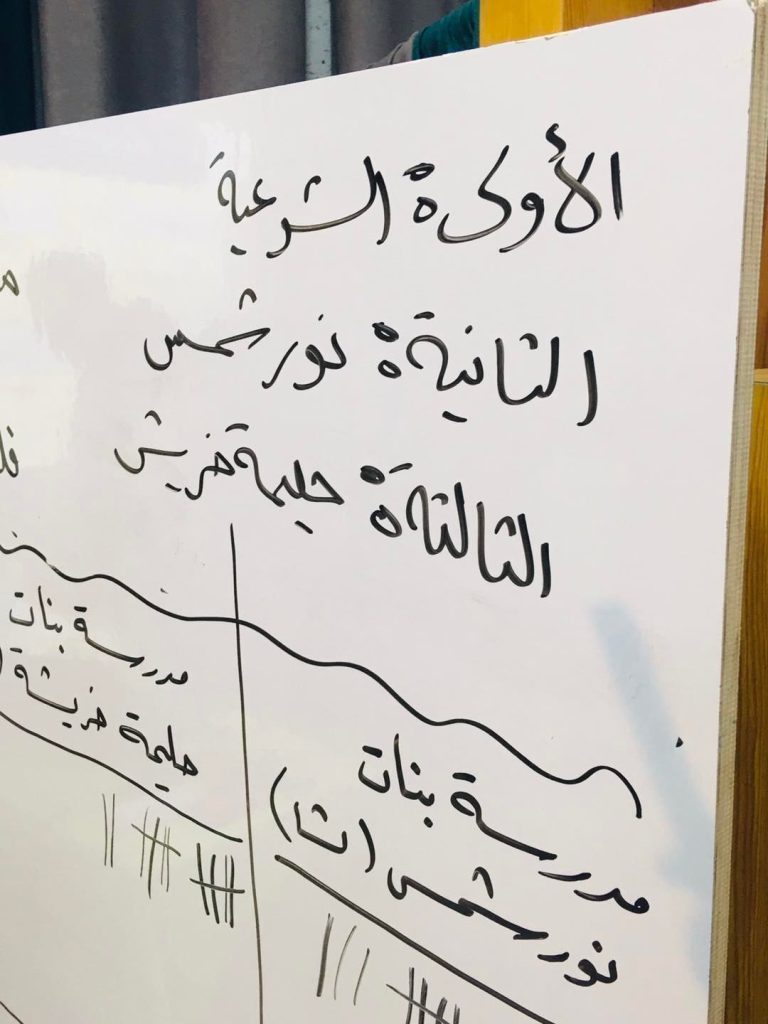 الأولى: الشرعية
الثانية: نور شمس
الثالثة: حليمة خريش
مدرسة بنات
نور شمس (ثا)
مدرسة بنات
حليمة خريشة